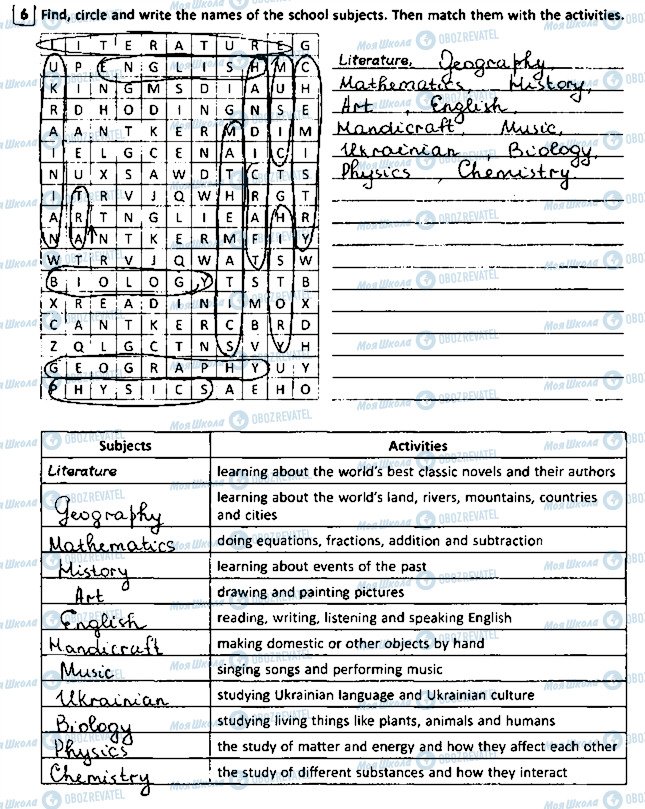 6 Find, circle and write the names of the school subjects. Then match them with the activities.
L I T E R A T U R E G
U P E N G L I S H M C
K I N G M S D I A U H
R D H O D I N G N S E
A A N T K E R M D I M
I E L G C E N A I C I
N U X S A W D T C T S
I T R V J Q W H R G T
A R T N G L I E A H R
N A N T K E R M F I Y
W T R V J Q W A S W
B I O L O G Y T S T B
X R E A D I N I M O X
C A N T K E R C B R D
Z Q L G C T N S V Y H
G E O G R A P H Y U Y
P H Y S I C S A E H O
Literature, Geography,
Mathematics, History,
Art, English,
Handicraft, Music,
Ukrainian, Biology,
Physics, Chemistry.
Subjects Activities
Literature learning about the world's best classic novels and their authors
Geography learning about the world's land, rivers, mountains, countries and cities
Mathematics doing equations, fractions, addition and subtraction
History learning about events of the past
Art drawing and painting pictures
English reading, writing, listening and speaking English
Handicraft making domestic or other objects by hand
Music singing songs and performing music
Ukrainian studying Ukrainian language and Ukrainian culture
Biology studying living things like plants, animals and humans
Physics the study of matter and energy and how they affect each other
Chemistry the study of different substances and how they interact
Моя Школа OBOZREVATEL